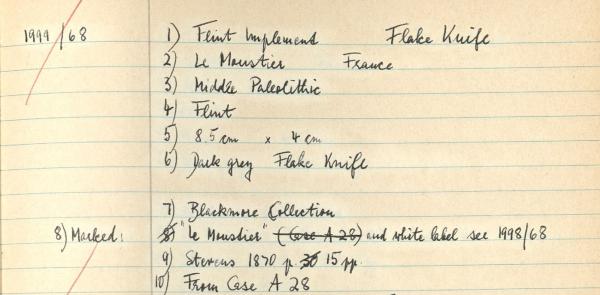 1999/68 1) Flint Implement Flake Knife
2) Le Moustier France
3) Middle Paleolithic
4) Flint
5) 8.5 cm x 4 cm
6) Dark grey Flake Knife
7) Blackmore Collection
8) Marked: 8) "Le Moustier" (Case A 28) and white label see 1998/68
9) Stevens 1870 p. 15 pp.
10) From Case A 28